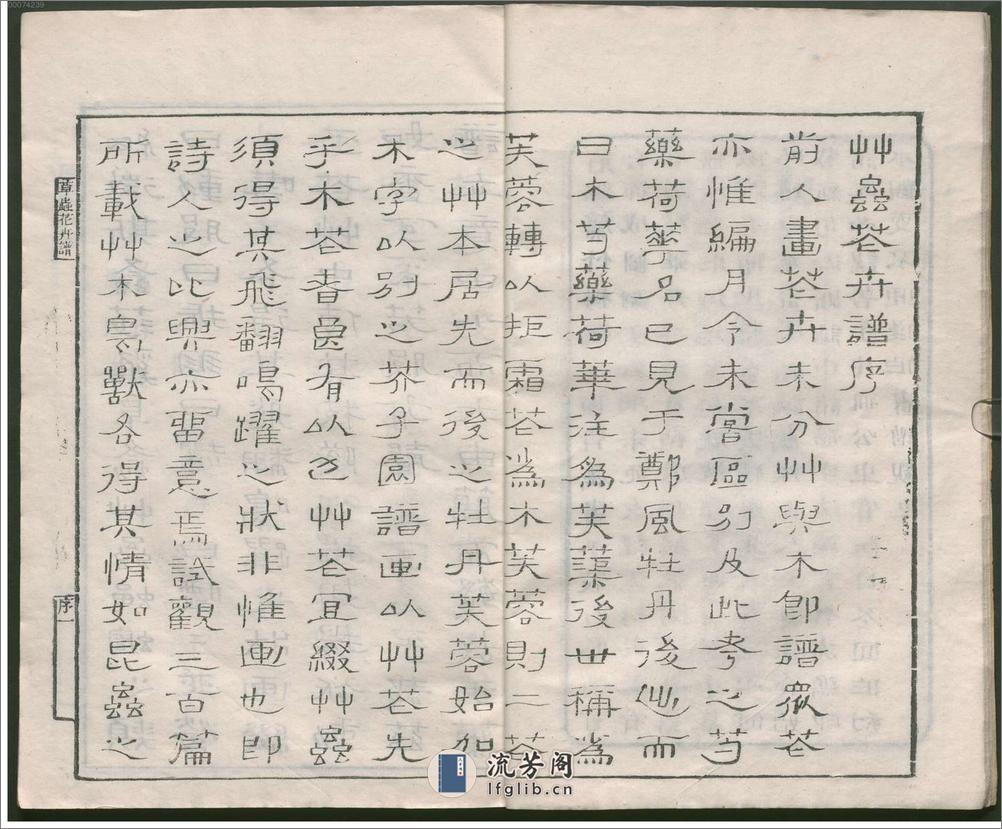 艸蟲芲卉譜序
前人畫芲卉未分艸與木即譜眾芲
亦惟編月令未嘗區別及此考之芍
藥荷蕐名已見于鄭風牡丹後出而
曰木芍藥荷華注為芙蕖後世稱為
芙蓉轉以拒霜芲為木芙蓉則二芲
之艸本居先而後之牡丹芙蓉始加
木字以別之芥子園譜画以艸芲先
乎木芲者良有以也艸芲宜綴艸蟲
須得其飛翻鳴躍之狀非惟画也即
詩人之比興亦畱意焉試觀三百篇
所載艸木鳥獸各得其情如昆蟲之
草蟲花卉譜
序
00074239
流芳阁
lfglib.cn